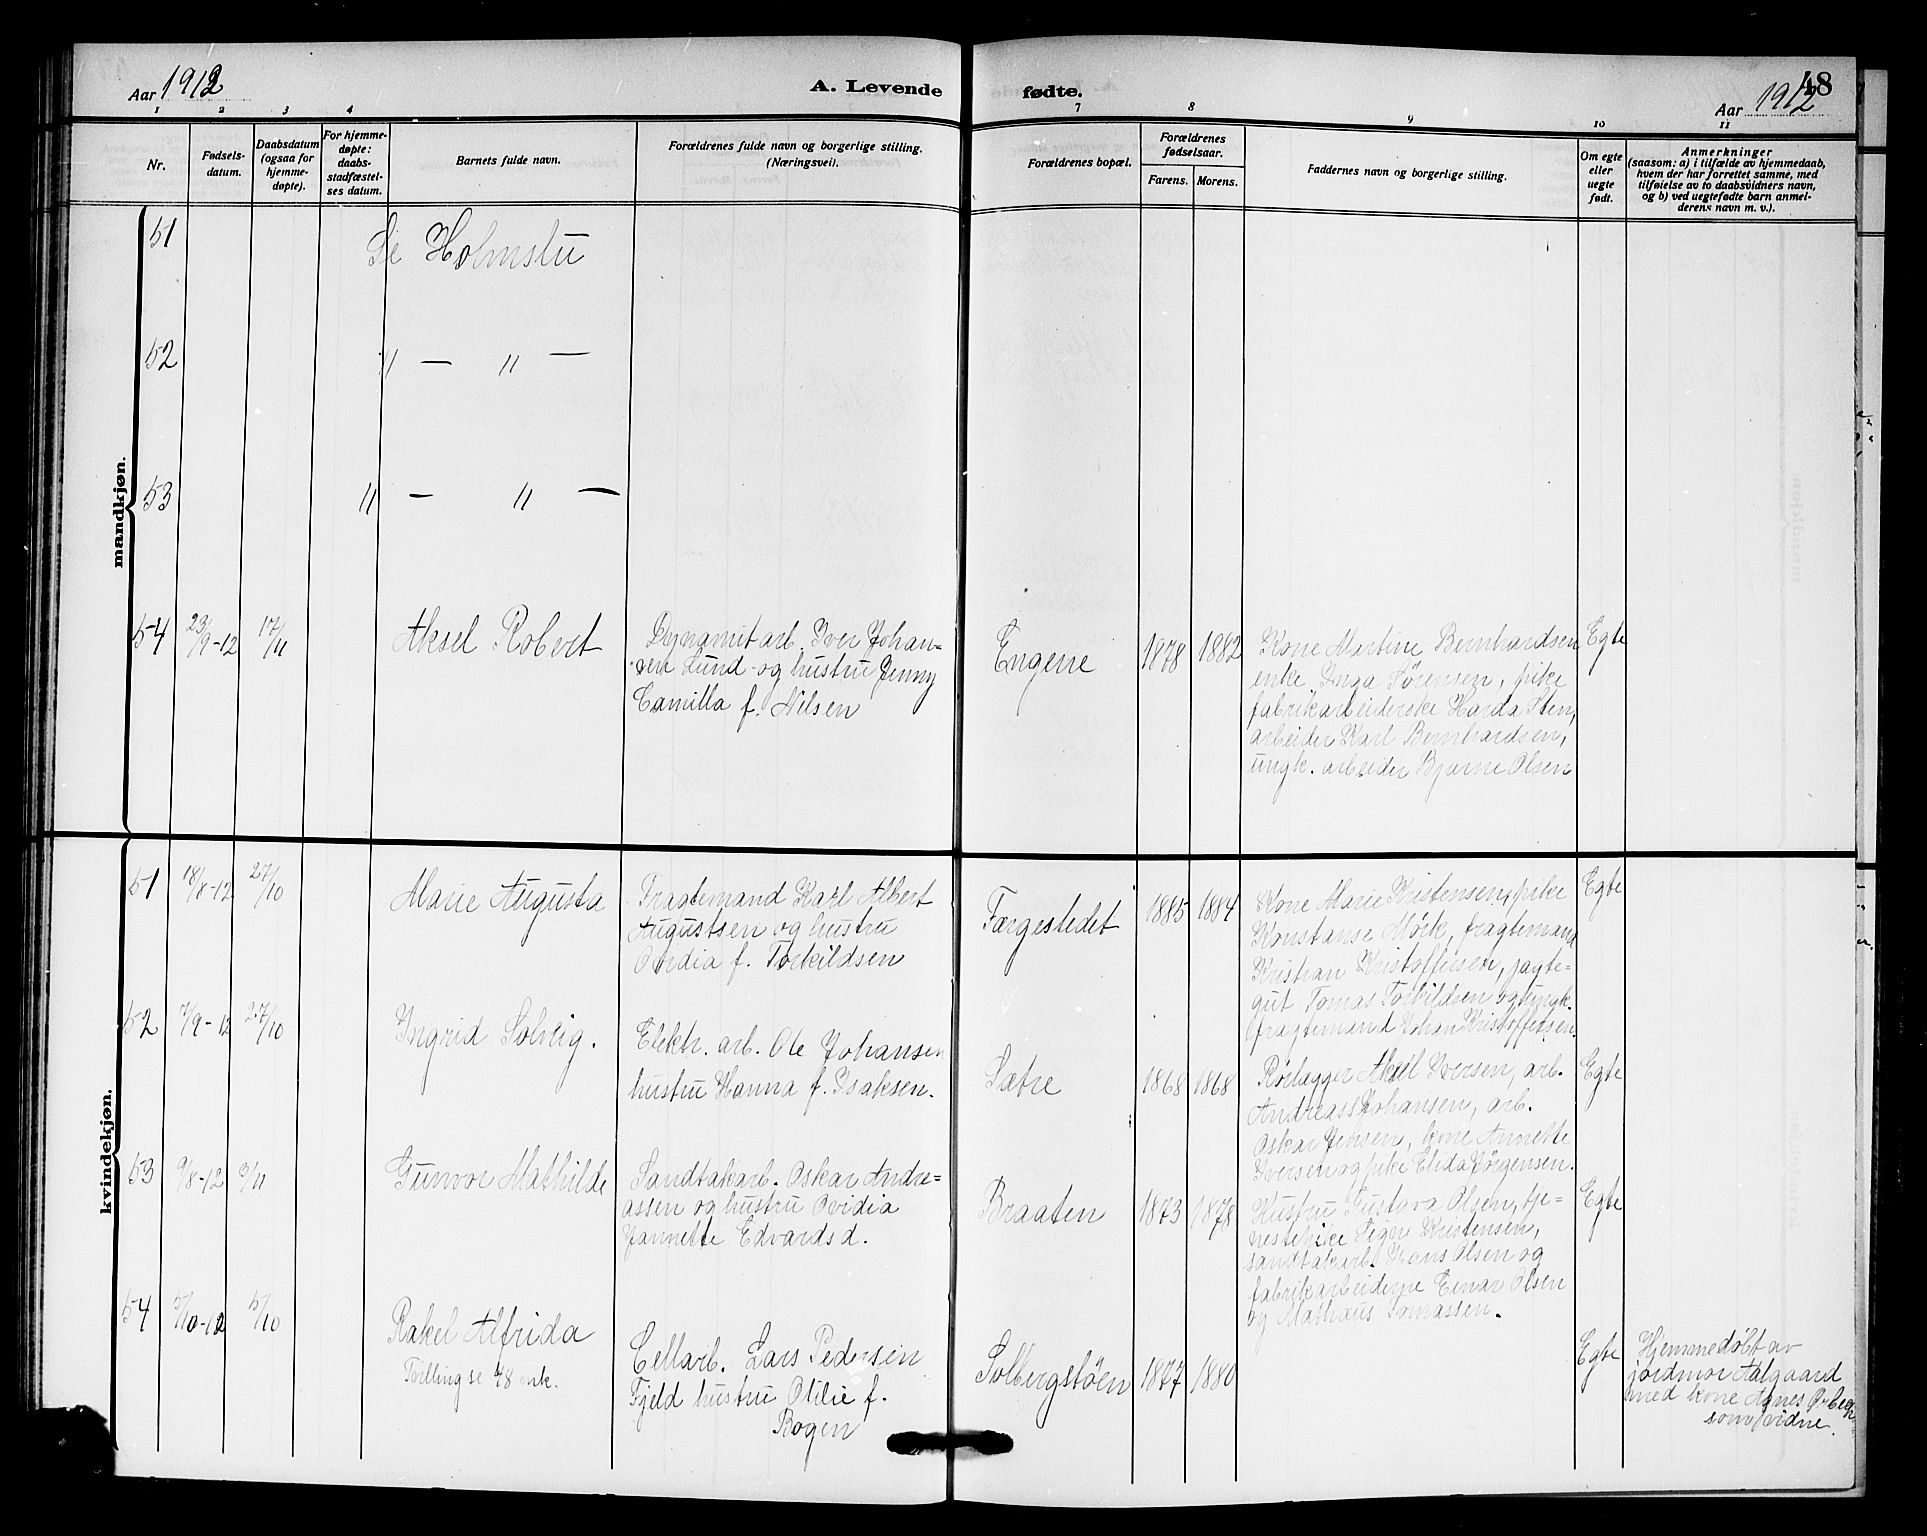 Aar 1912
A. Levende
fødte.
Aar 1912
48
1 2 3 4
7 8 9 10 11
Nr.
Fødsels-
datum.
Daabsdatum
(ogsaa for
hjemme-
døpte).
For hjemme-
døpte:
daabs-
stadfæstel-
ses datum.
Barnets fulde navn.
Forældrenes fulde navn og borgerlige stilling.
(Næringsvei).
Forældrenes bopæl.
Forældrenes
fødselsaar.
Farens. Morens.
Faddernes navn og borgerlige stilling.
Om egte
eller
uegte
født.
Anmerkninger
(saasom: a) i tilfælde av hjemmedaab,
hvem der har forrettet samme, med
tilføielse av to daabsvidners navn,
og b) ved uegtefødte barn anmel-
derens navn m. v.).
mandkjøn.
51
Se Holmsbu
52
" — " —
53
" — " —
54
23/9-12
17/11
Aksel Robert
Dynamitarb. Iver Johan-
sen Lund og hustru Jenny
Camilla f. Nilsen
Engene
1878
1882
Kone Martine Bernhardsen
enke Inga Sørensen, pike
fabrikarbeiderske Harda Sten,
arbeider Karl Bernhardsen,
ungk. arbeider Bjarne Olsen
Egte
kvindekjøn.
51
18/8-12
27/10
Marie Augusta
Fragtemand Karl Albert
Augustsen og hustru
Ovidia f. Torkildsen
Færgestedet
1885
1884
Kone Marie Kristensen, pike
Konstanse Mörk, fragtemand
Kristian Kristoffersen, jagte-
gut Tomas Torkildsen og ungk.
fragtemand Johan Kristoffersen.
Egte
52
7/9-12
27/10
Ingrid Solveig.
Elektr. arb. Ole Johansen
hustru Hanna f. Isaksen.
Sætre
1868
1868
Rörlægger Aksel Iversen, arb.
Andreas Johansen, arb.
Oskar Jensen, kone Annette
Iversen og pike Elida Jörgensen.
Egte
53
9/8-12
3/11
Gunvor Mathilde
Sandtakarb. Oskar Andre-
assen og hustru Ovidia
Jannette Edvardsd.
Braaten
1873
1878
Hustru Gustava Olsen, tje-
nestepike Signe Kristensen,
sandtakarb. Hans Olsen og
fabrikarbeiderne Einar Olsen
og Mathæus Tomassen.
Egte
54
5/10-12
5/10
Rakel Alfrida
Tvilling se 48 mk.
Cellarb. Lars Pedersen
Fjeld hustru Otilie f.
Bogen
Solbergstöen
1877
1880
Egte
Hjemmedöbt av
jordmor Aalgaard
med kone Agnes
som vidne.